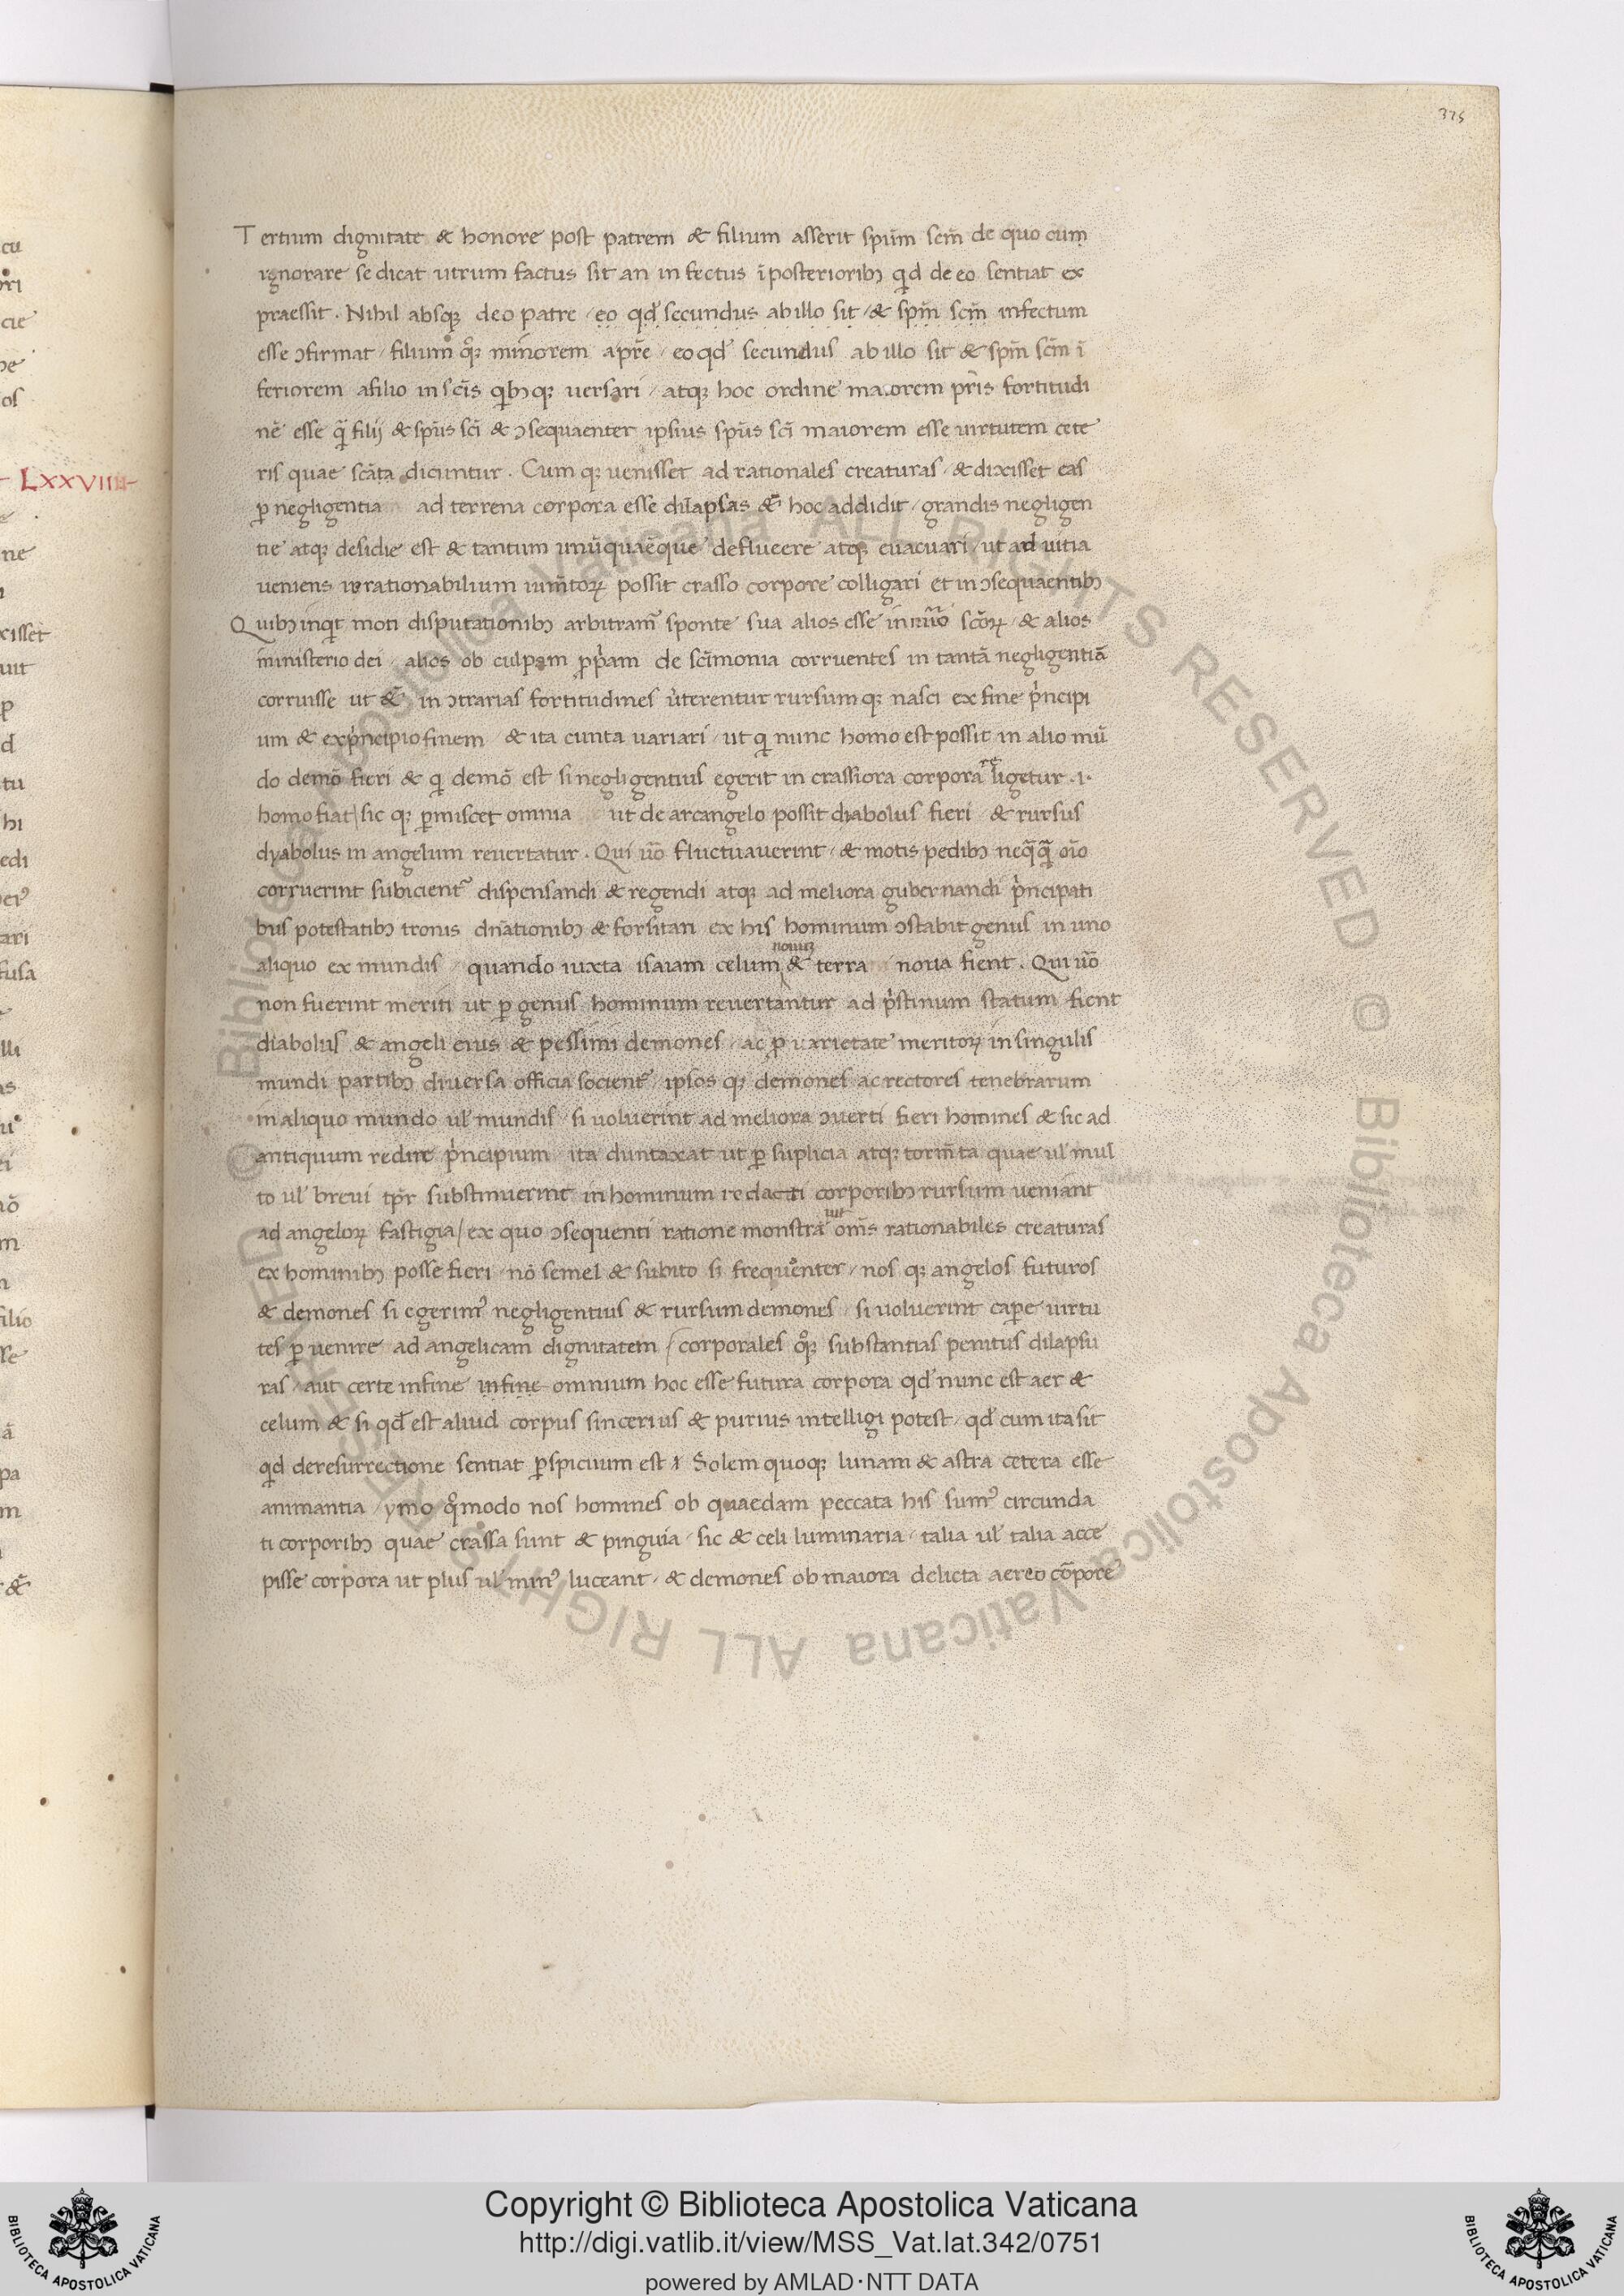 375
Tertium dignitate & honore post patrem & filium asserit spūm scm̄ de quo cum
ignorare se dicat utrum factus sit an infectus ī posterioribꝫ qd de eo sentiat ex
praessit. Nihil absqꝫ deo patre / eo qd̄ secundus ab illo sit / & spm̄ scm̄ infectum
esse ɔfirmat / filium qͦꝫ minorem a prē / eo qd̄ secundus ab illo sit & spm̄ scm̄ ī
feriorem a filio in scīs qibꝫqꝫ versari / atqꝫ hoc ordine maiorem pr̄is fortitudi
nē esse q̄ filij & spūs scī & ɔsequaenter ipsius spūs scī maiorem esse uirtutem cete
ris quae scāta dicuntur. Cum qꝫ uenisset ad rationales creaturas / & dixisset eas
ꝑ negligentia ad terrena corpora esse dilapsas &̄ hoc addidit / grandis negligen
tie atqꝫ desidie est & tantum unūquaēque defluere atqꝫ euacuari / ut ad uitia
ueniens irrationabilium ium̄toꝝ possit crasso corpore colligari et in ɔsequaentibꝫ
Quibꝫ inqit moti disputationibꝫ arbitram̄ sponte sua alios esse in nūo scōꝝ / & alios
ministerio dei / alios ob culpam ꝓpam de scīmonia corruentes in tantā negligentiā
corruisse ut &̄ in ɔtrarias fortitudines uterentur rursum qꝫ nasci ex fine pncipi
um & ex pncipio finem & ita cunta uariari / ut qi nunc homo est possit in alio mū
do demō fieri & qi demō est si negligentius egerit in crassiora corpora religetur .i.
homo fiat / sic qꝫ ꝑmiscet omnia ut de arcangelo possit diabolus fieri & rursus
dyabolus in angelum reuertatur. Qui uō fluctuauerint / & motis pedibꝫ neq̄q̄ oīo
corruerint subicient̄ dispensandi & regendi atqꝫ ad meliora gubernandi pncipati
bus potestatibꝫ tronis dn̄ationibꝫ & forsitan ex his hominum ɔstabit genus in uno
aliquo ex mundis / quando iuxta isaiam celum nouuꝫ & terra noua fient. Qui uō
non fuerint meriti ut ꝑ genus hominum reuertantur ad pstinum statum fient
diabolus & angeli eius & pessimi demones / ac ꝓ uarietate meritoꝝ in singulis
mundi partibꝫ diuersa officia socient̄ / ipsos qꝫ demones ac rectores tenebrarum
in aliquo mundo ul̄ mundis / si uoluerint ad meliora ɔuerti fieri homines & sic ad
antiquum redire pncipium / ita duntaxat ut ꝑ suplicia atqꝫ torm̄ta quae ul̄ mul
to ul̄ breui tpr̄ substinuerint in hominum redacti corporibꝫ rursum ueniant
ad angeloꝝ fastigia / ex quo ɔsequenti ratione monstratur om̄s rationabiles creaturas
ex hominibꝫ posse fieri / nō semel & subito si frequenter / nos qꝫ angelos futuros
& demones si egerim̄ negligentius & rursum demones / si uoluerint capere uirtu
tes ꝑuenire ad angelicam dignitatem / corporales qͦꝫ substantias penitus dilapsu
ras / aut certe in fine infine omnium hoc esse futura corpora qd̄ nunc est aer &
celum & si qd̄ est aliud corpus sincerius & purius intelligi potest / qd̄ cum ita sit
qd de resurrectione sentiat ꝑspicuum est / Solem quoqꝫ lunam & astra cetera esse
animantia / ymo qͦmodo nos homines ob quaedam peccata his sum̄ circunda
ti corporibꝫ quae crassa sunt & pinguia / sic & celi luminaria / talia ul̄ talia acce
pisse corpora ut plus ul̄ min̄ luceant / & demones ob maiora delicta aereo corpore
LXXVIIII
Copyright © Biblioteca Apostolica Vaticana
http://digi.vatlib.it/view/MSS_Vat.lat.342/0751
powered by AMLAD·NTT DATA
BIBLIOTECA APOSTOLICA VATICANA
BIBLIOTECA APOSTOLICA VATICANA
© Biblioteca Apostolica Vaticana ALL RIGHTS RESERVED © Biblioteca Apostolica Vaticana ALL RIGHTS RESERVED